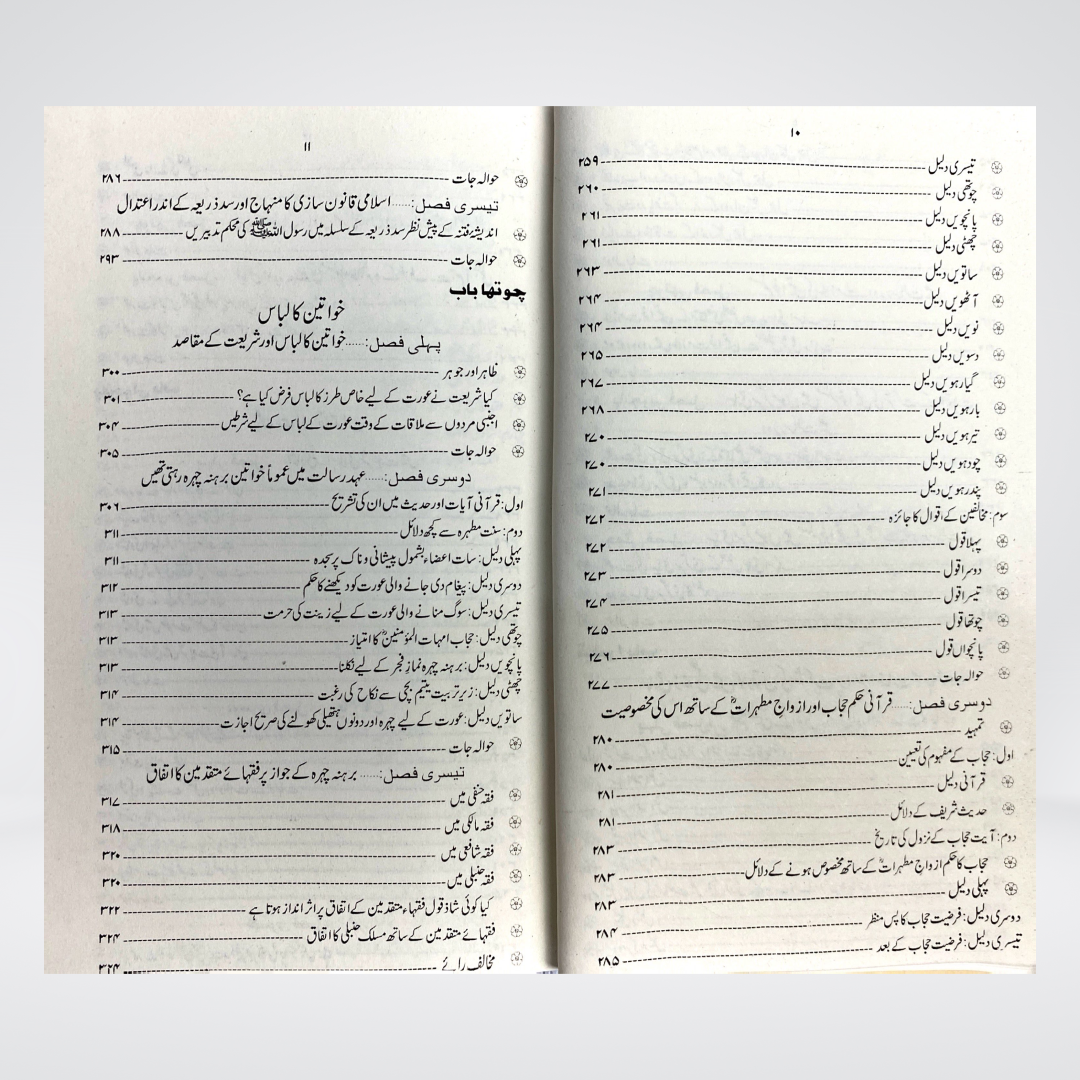 ۱۰
تیسری دلیل ۲۵۹
چوتھی دلیل ۲۶۰
پانچویں دلیل ۲۶۱
چھٹی دلیل ۲۶۱
ساتویں دلیل ۲۶۳
آٹھویں دلیل ۲۶۴
نویں دلیل ۲۶۴
دسویں دلیل ۲۶۵
گیارہویں دلیل ۲۶۷
بارہویں دلیل ۲۶۸
تیرہویں دلیل ۲۷۰
چودہویں دلیل ۲۷۰
پندرہویں دلیل ۲۷۱
سوم: مخالفین کے اقوال کا جائزہ ۲۷۲
پہلا قول ۲۷۲
دوسرا قول ۲۷۳
تیسرا قول ۲۷۴
چوتھا قول ۲۷۵
پانچواں قول ۲۷۶
حوالہ جات ۲۷۷
دوسری فصل:...... قرآنی حکم حجاب اور ازواجِ مطہراتؓ کے ساتھ اس کی مخصوصیت
تمہید ۲۸۰
اول: حجاب کے مفہوم کی تعیین ۲۸۰
قرآنی دلیل ۲۸۱
حدیث شریف کے دلائل ۲۸۱
دوم: آیت حجاب کے نزول کی تاریخ ۲۸۳
حجاب کا حکم ازواجِ مطہراتؓ کے ساتھ مخصوص ہونے کے دلائل ۲۸۳
پہلی دلیل ۲۸۳
دوسری دلیل: فرضیت حجاب کا پس منظر ۲۸۴
تیسری دلیل: فرضیت حجاب کے بعد ۲۸۵
۱۱
حوالہ جات ۲۸۶
تیسری فصل:...... اسلامی قانون سازی کا منہاج اور سد ذریعہ کے اندر اعتدال
اندیشۂ فتنہ کے پیش نظر سد ذریعہ کے سلسلہ میں رسول اللہ ﷺ کی محکم تدبیریں ۲۸۸
حوالہ جات ۲۹۳
چوتھا باب
خواتین کا لباس
پہلی فصل:...... خواتین کا لباس اور شریعت کے مقاصد
ظاہر اور جوہر ۳۰۰
کیا شریعت نے عورت کے لیے خاص طرز کا لباس فرض کیا ہے؟ ۳۰۱
اجنبی مردوں سے ملاقات کے وقت عورت کے لباس کے لیے شرطیں ۳۰۴
حوالہ جات ۳۰۵
دوسری فصل:...... عہد رسالت میں عموماً خواتین برہنہ چہرہ رہتی تھیں
اول: قرآنی آیات اور حدیث میں ان کی تشریح ۳۰۶
دوم: سنت مطہرہ سے کچھ دلائل ۳۱۱
پہلی دلیل: سات اعضاء بشمول پیشانی و ناک پر سجدہ ۳۱۱
دوسری دلیل: پیغام دی جانے والی عورت کو دیکھنے کا حکم ۳۱۲
تیسری دلیل: سوگ منانے والی عورت کے لیے زینت کی حرمت ۳۱۳
چوتھی دلیل: حجاب امہات المؤمنینؓ کا امتیاز ۳۱۳
پانچویں دلیل: برہنہ چہرہ نمازِ فجر کے لیے نکلنا ۳۱۳
چھٹی دلیل: زیر تربیت یتیم بچی سے نکاح کی رغبت ۳۱۴
ساتویں دلیل: عورت کے لیے چہرہ اور دونوں ہتھیلی کھولنے کی صریح اجازت ۳۱۴
حوالہ جات ۳۱۵
تیسری فصل:...... برہنہ چہرہ کے جواز پر فقہائے متقدمین کا اتفاق
فقہ حنفی میں ۳۱۷
فقہ مالکی میں ۳۱۸
فقہ شافعی میں ۳۲۰
فقہ حنبلی میں ۳۲۰
کیا کوئی شاذ قول فقہاء متقدمین کے اتفاق پر اثر انداز ہوتا ہے ۳۲۲
فقہائے متقدمین کے ساتھ مسلک حنبلی کا اتفاق ۳۲۴
مخالف رائے ۳۲۴